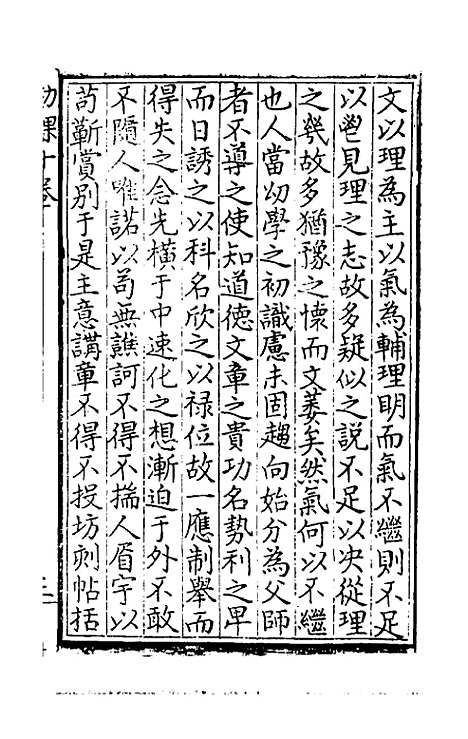 文以理為主以氣為輔理明而氣不繼則不足
以鬯見理之志故多疑似之說不足以决從理
之幾故多猶豫之懷而文萎矣然氣何以不繼
也人當幼學之初識慮未固趨向始分為父師
者不導之使知道徳文章之貴功名勢利之卑
而日誘之以科名欣之以禄位故一應制舉而
得失之念先橫于中速化之想漸迫于外不敢
不隨人唯諾以茍無譙訶不得不揣人眉宇以
茍蘄賞别于是主意講章不得不投坊刻帖括
幼課十卷